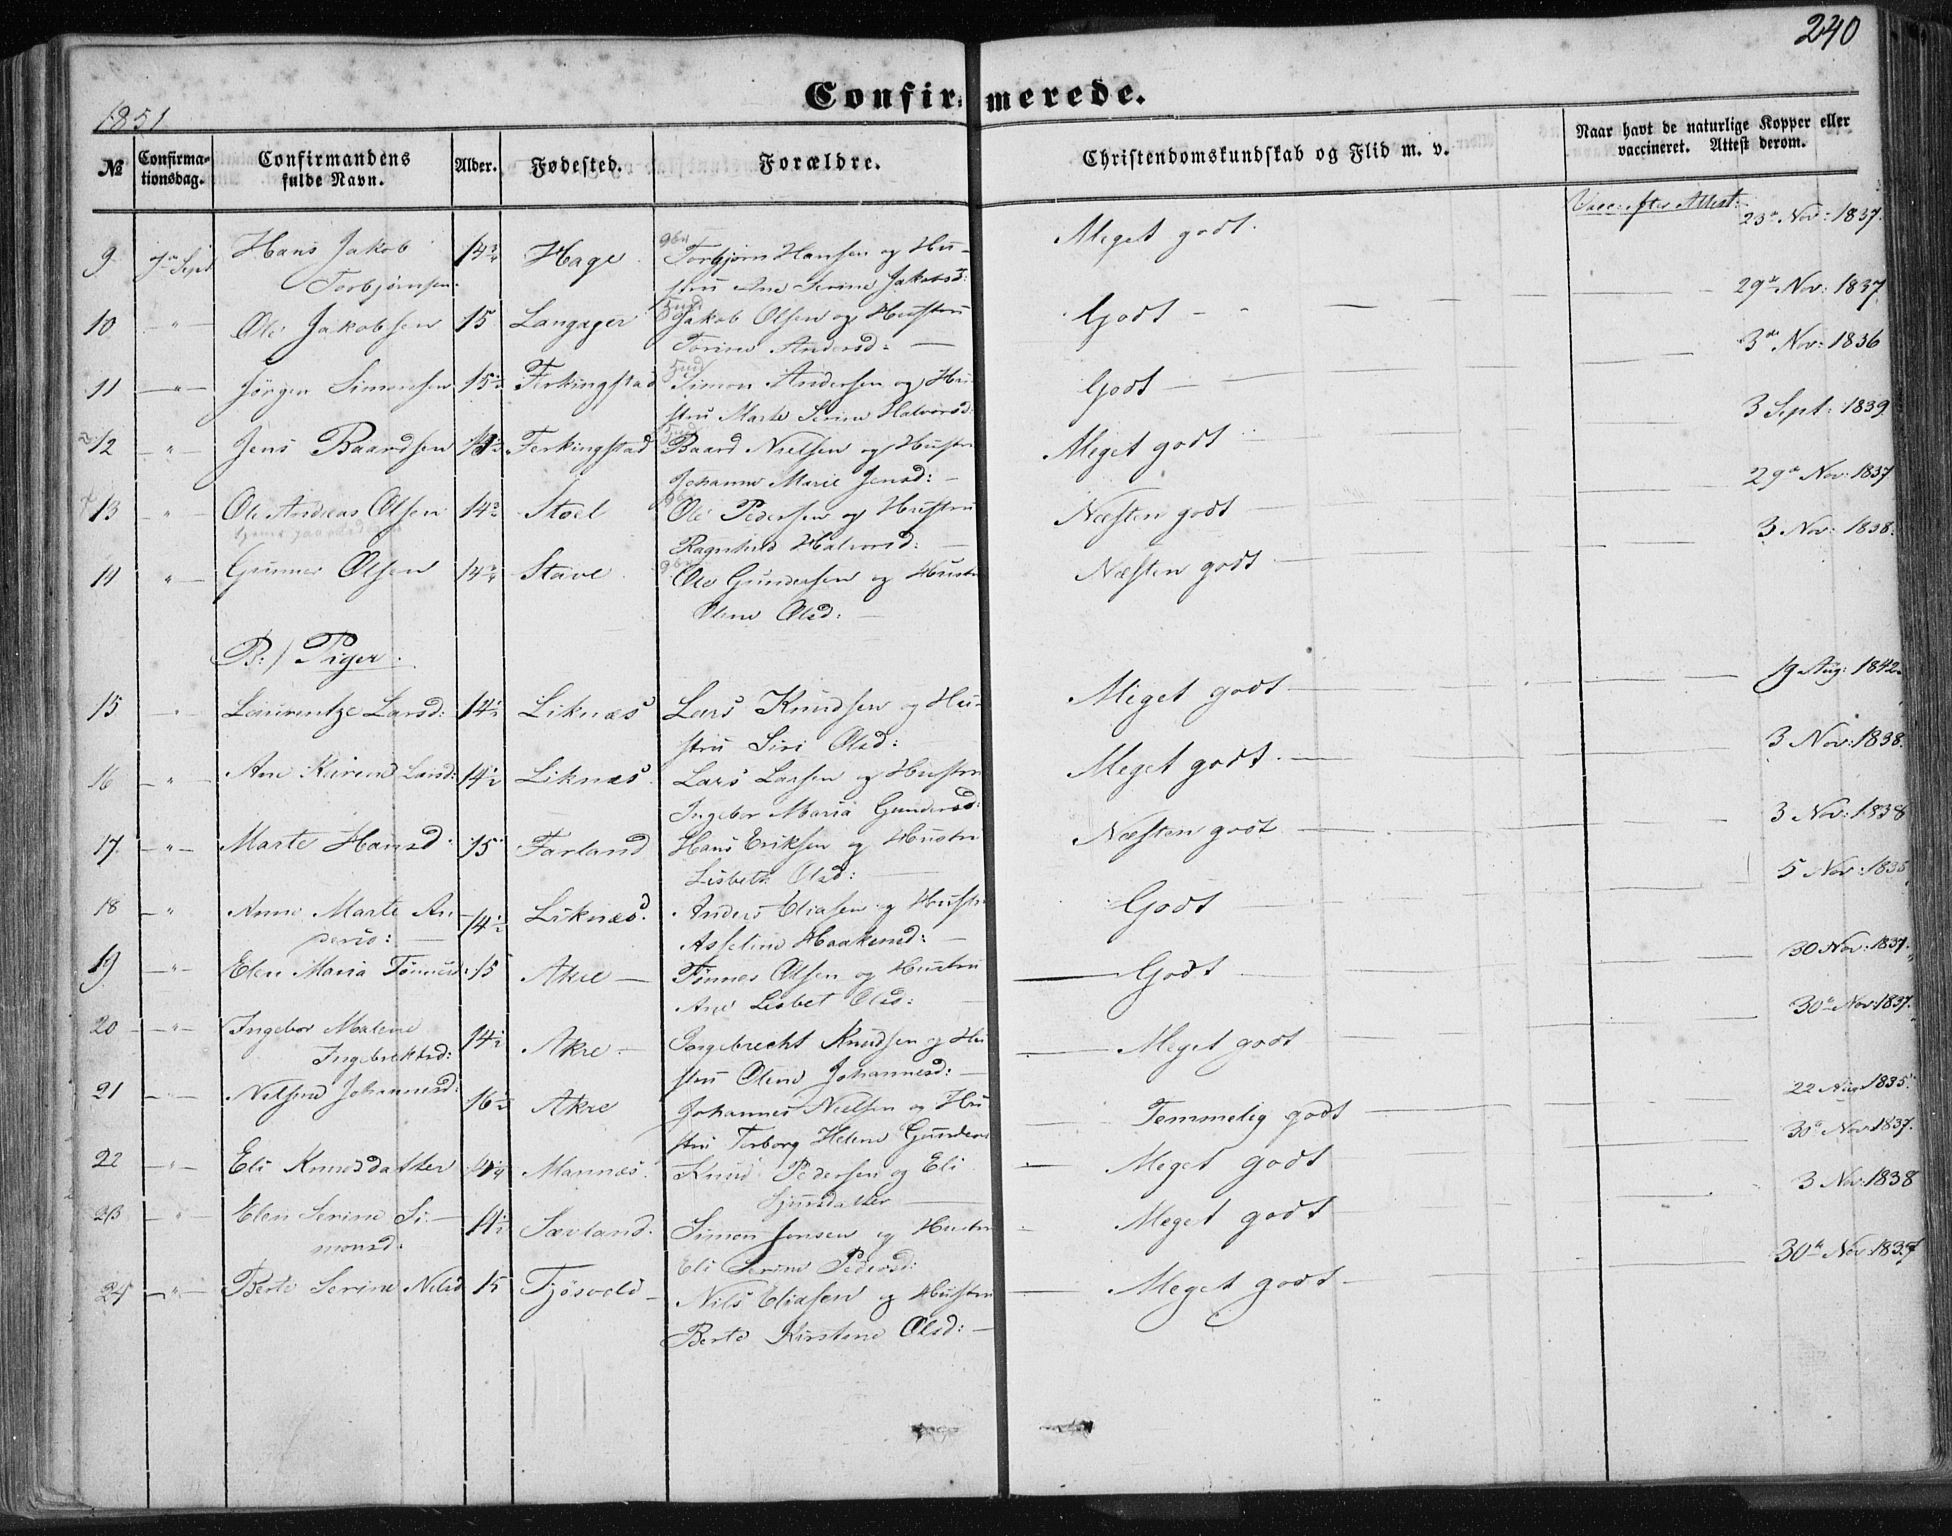 240
1851
Confirmerede.
№ Confirmationsdag. Confirmandens fulde Navn. Alder. Fødested. Forældre. Christendomskundskab og Flid m. v. Naar havt de naturlige Kopper eller vaccineret. Attest derom.
Vacc: efter Attest:
9 7de Sept Hans Jakob Hage Torbjørn Hansen og Hu- Meget godt. 23de Nov: 1837.
Torbjørnsen. stru Ane Serine Jakobsd:
10 " Ole Jakobsen 15 Langager Jakob Olsen og Hustru Godt 29de Nov: 1837
Torine Andersd:
11 " Jørgen Simonsen 15½ Ferkingstad Simon Andersen og Hu Godt 3de Nov: 1836
stru Marte Serine Halvorsd:
12 " Jens Baardsen Ferkingstad Baard Nielsen og Hustru Meget godt 3 Sept: 1839
Johanne Marie Jensd:
13 " Ole Andreas Olsen Stoel Ole Pedersen og Hustru Næsten godt 29de Nov: 1837
Ragnhild Halvorsd:
14 " Gunner Olsen Stave Ole Gundersen og Hustru Næsten godt 3 Nov: 1838.
Oline Olsd:
B:/ Piger.
15 " Laurentze Larsd: 14½ Liknæs Lars Knudsen og Hu- Meget godt 19 Aug: 1842.
stru Siri Olsd:
16 " Ane Karine Larsd: 14½ Liknæs Lars Larsen og Hustru Meget godt. 3 Nov: 1838.
Ingebor Maria Gundersd:
17 " Marte Hansd: 15 Farland Hans Eriksen og Hustru Næsten godt 3 Nov: 1838
Lisbeth Olsd:
18 " Anne Marte An- 14½ Liknæs. Anders Eliasen og Hustru Godt 5 Nov:
dersd: Asseline Haakensd:
19 " Elen Maria Tönnesd: 15 Akre Tönnes Olsen og Hustru Godt 30 Nov: 1837.
Ane Lisbet Olsd:
20 " Ingebor Malene 14½ Akre Ingebrecht Knudsen og Hu Meget godt 30te Nov: 1837.
Ingebrektsd: stru Oline Johannesd:
21 " Nilsine Johannesd: 16½ Akre Johannes Nielsen og Hu Temmelig godt 22 1835.
stru Torborg Helene Gunders
22 " Eli Knudsdatter Mannæs Knud Pedersen og Eli Meget godt 30te Nov: 1837.
Sjursdatter
23 " Elen Serine Si- 14½ Sævland. Simon Jensen og Hustru Meget godt 3 Nov: 1838
monsd. Eli Serine Pedersd:
24 " Berte Serine Nilsd 15 Tjøsvold Nils Eliasen og Hustru Meget godt 30te Nov: 1837
Berte Kirstene Olsd: